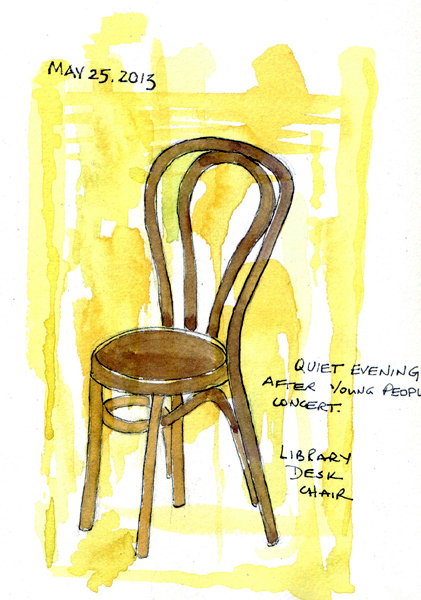 MAY 25.2013
QUIET EVENING
AFTER YOUNG PEOPL
CONCERT.
LIBRARY
DESK
CHAIR